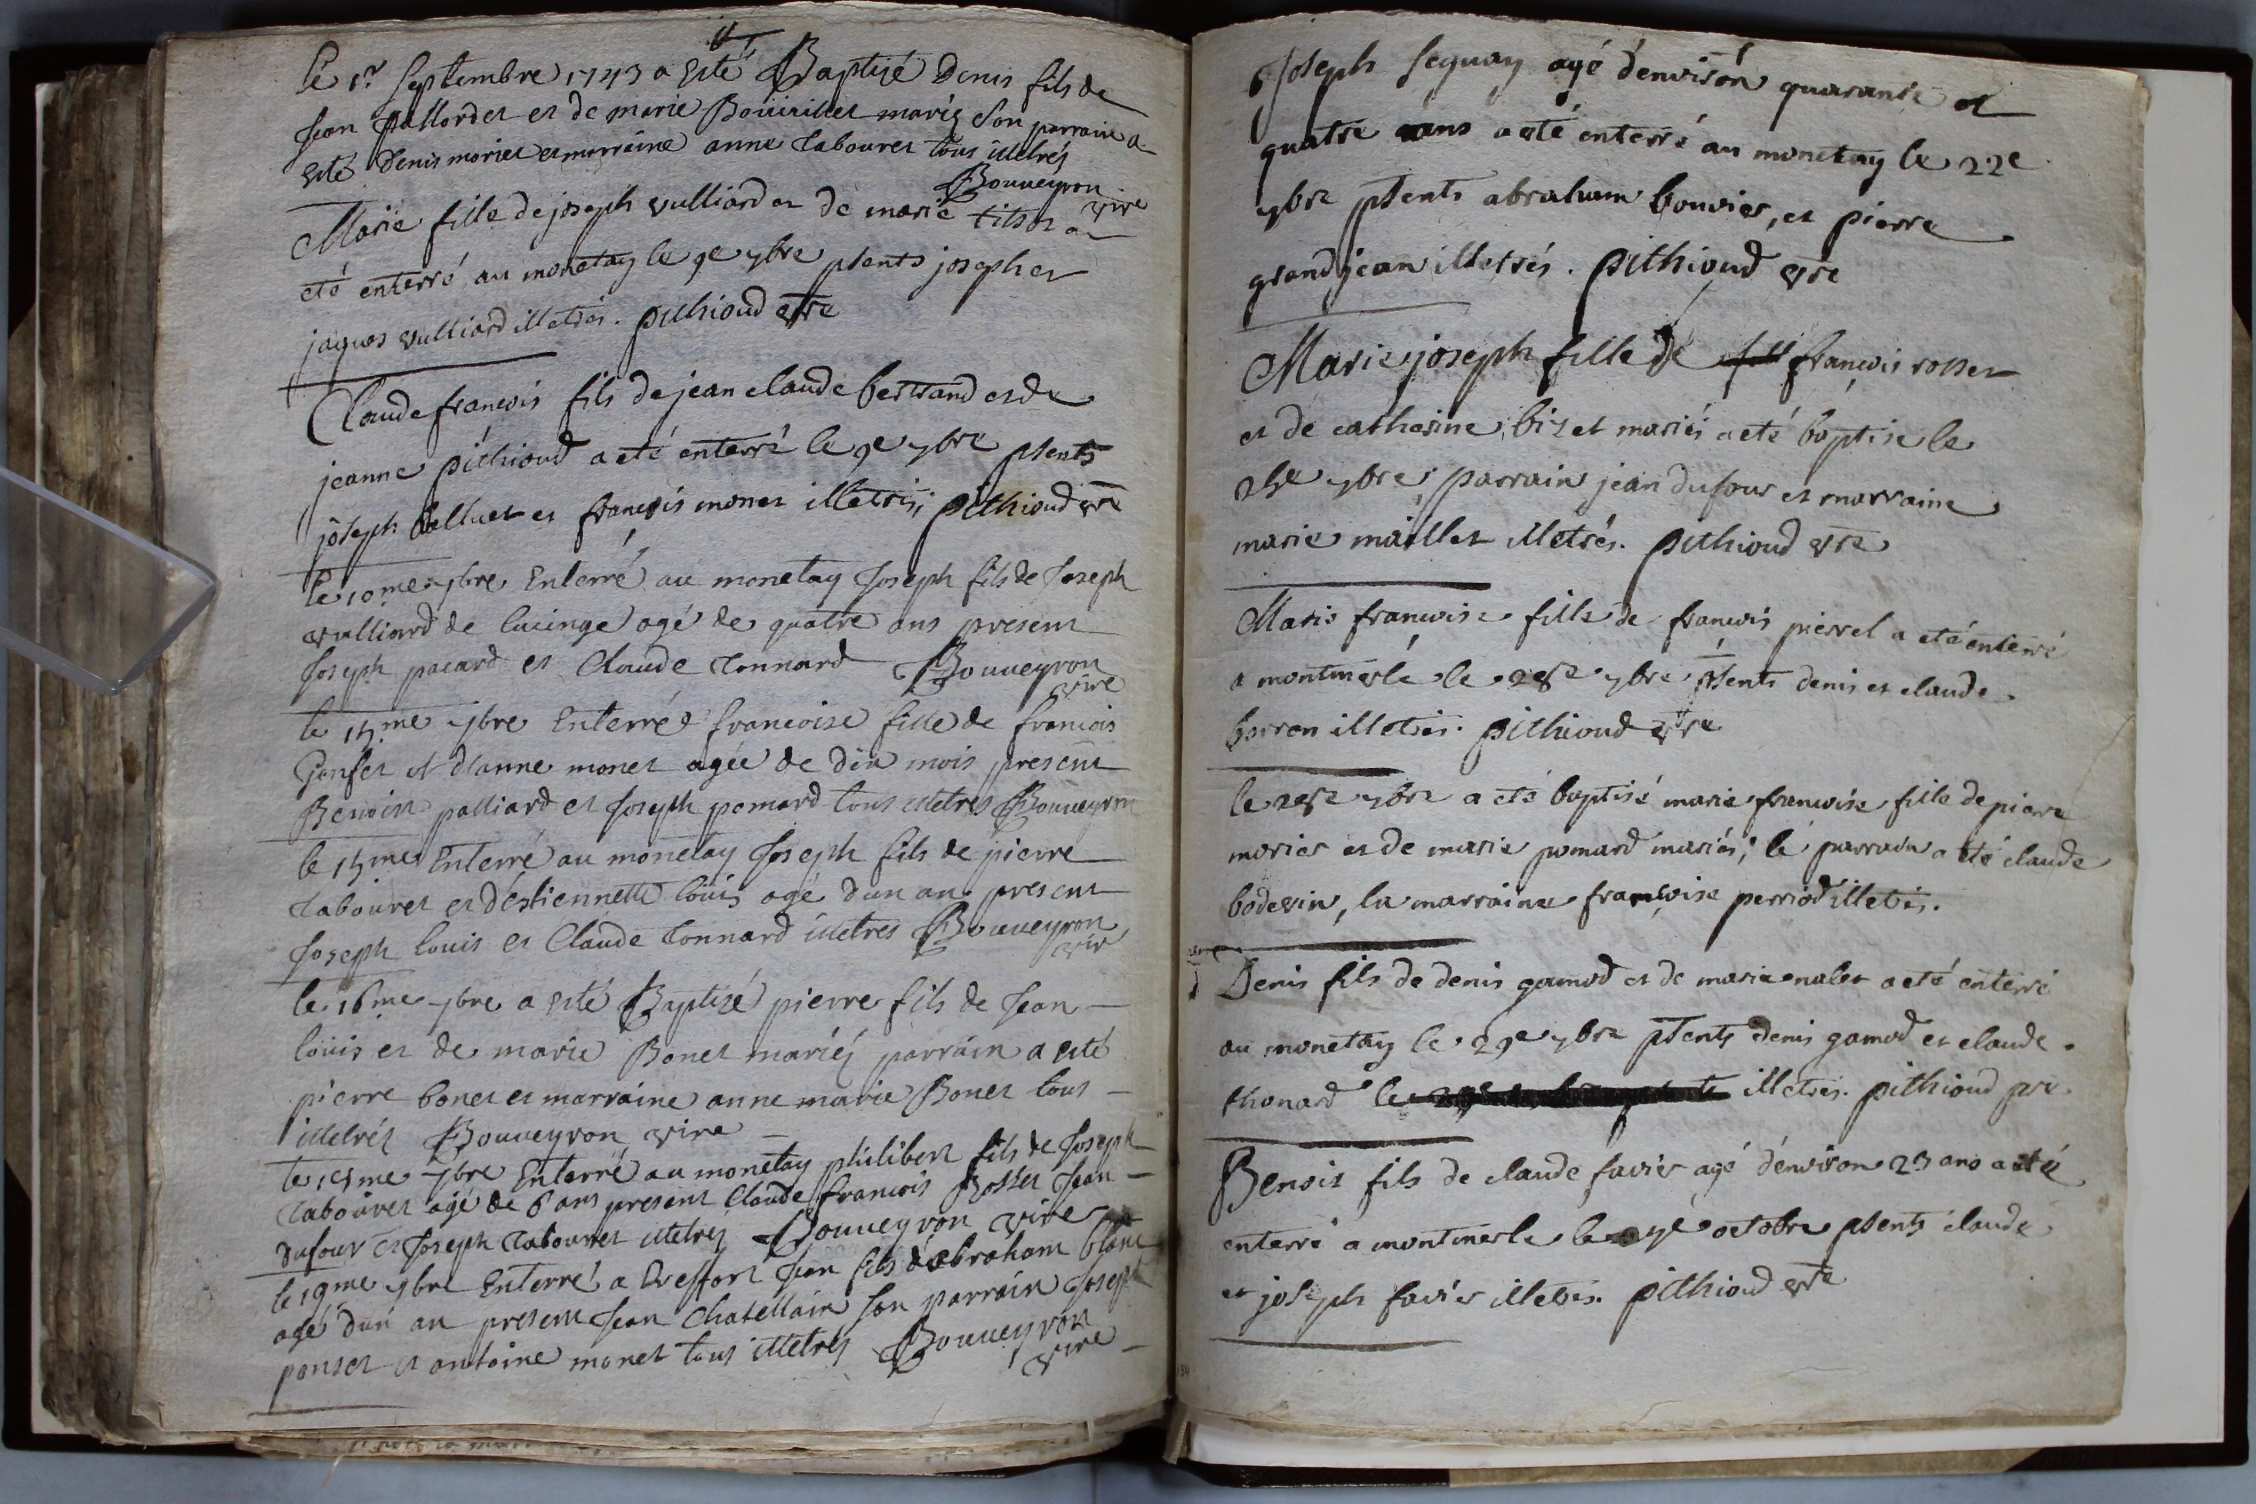 le 1r Septembre 1743 a Esté Baptisé Denis fils de
Jean Pallordet et de marie Boüirillet mariés Son parrain a
Esté Denis moriet et marraine anne tabouret tous illetrés
Bouveyron
vire
Marie fille de joseph vulliard et de marie a
eté enterré au monetay le 9e 7bre psents joseph et
jaques vulliard illetrés. pithioud vre
Claude françois fils de jean claude bertrand et de
jeanne pithioud a eté enterré le 9e 7bre psents
joseph et françois monet illetrés; pithioud vre
le 10me 7bre Enterré au monetay Joseph fils de Joseph
vulliard de lucinge agé de quatre ans present
Joseph pacard et Claude tonnard Bouveyron
vire
le 15me 7bre Enterré francoise fille de francois
Gonfet et d'anne monet agée de dix mois present
Benoist palliard et Joseph pomard tous illetres Bouveyron
le 15me Enterré au monetay Joseph fils de pierre
tabouret et d'estiennette loüis agé d'un an present
Joseph louis et Claude tonnard illetres Bouveyron
vire
le 16me 7bre a esté Baptisé pierre fils de Jean
loüis et de marie Bonet mariés parrain a esté
pierre bonet et marraine anne marie Bonet tous
illetrés Bouveyron vire
le 7bre Enterré au monetay philibert fils de Joseph
tabouret agé de 6 ans present Claude francois Rosset Jean
Dufour et Joseph tabouret illetres Bouveyron vire
le 19me 7bre Enterré a Treffort Jean fils d'abraham blanc
agé d'un an present Jean Chatellain son parrain Joseph
ponset et antoine monet tous illetrés Bouveyron
vire
Joseph seguay agé d'environ quarante et
quatre ans a eté enterré au monetay le 22e
7bre psents abraham bouvier, et pierre
grandjean illetrés. pithioud vre
Marie joseph fille de françois rosset
et de catherine bizet mariés a eté baptise le
25e 7bre parrain jean dufour et marraine
marie maillet illetrés. pithioud vre
Marie françoise fille de françois pierrel a eté enterré
a montmerle le 28e 7bre psents denis et claude
borron illetrés. pithioud vre
le 28e 7bre a eté baptisé marie françoise fille de pierre
morier et de marie pomard mariés; le parrain a eté claude
bodevin, la marraine françoise perriod illetrés.
Denis fils de denis gamod et de marie nalet a eté enterré
au monetay le 29e 7bre psents denis gamod et claude
thonard le illetrés. pithioud pre
Benoit fils de claude favier agé d'environ 23 ans a eté
enterré a montmerle le 7e octobre psents claude
et joseph favier illetrés. pithioud vre